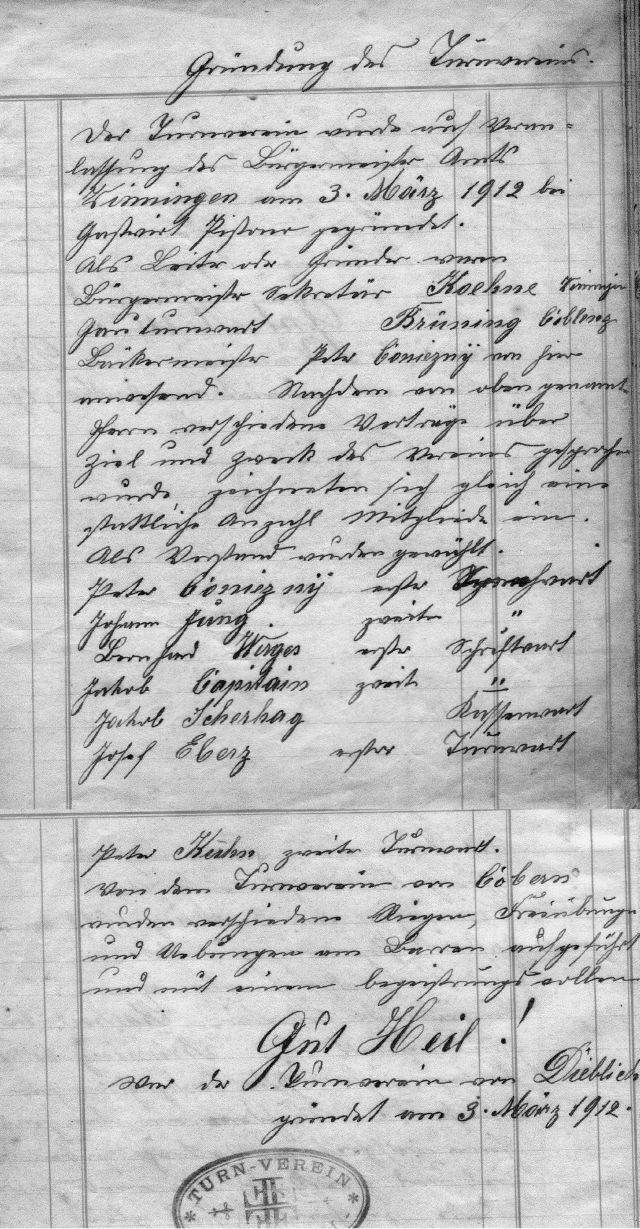 Gründung des Turnvereins.
Der Turnverein wurde auf Veran=
lassung des Bürgermeister Amts
Winningen am 3. März 1912 bei
Gastwirt Pistono gegründet.
Als Leiter oder Gründer waren
Bürgermeister Sekretär Koehne Winningen
Gauturnwart Brüning Coblenz
Bäckermeister Peter Coniezny von hier
anwesend. Nachdem von oben genannt
Herrn verschiedene Vorträge über
Ziel und Zweck des Vereins gesprochen
wurde zeichneten sich gleich eine
stattliche Anzahl Mitglieder ein.
Als Vorstand wurden gewählt.
Peter Coniezny erster
Johann Jung. zweiter "
Bernhard Werges erster Schriftwart
Jakob Capitain zweit "
Jakob Scherhag Kassenwart
Josef Eberz erster Turnwart
Peter Kuhn zweiter Turnwart.
Von dem Turnverein von Cobern
wurden verschiedene Riegen, Freiübungen
und Uebungen am Barren aufgeführt
und mit einem begeisterungsvollen
Gut Heil!
war der Turnverein von Dieblich
gründet am 3. März 1912.
* TURN-VEREIN *